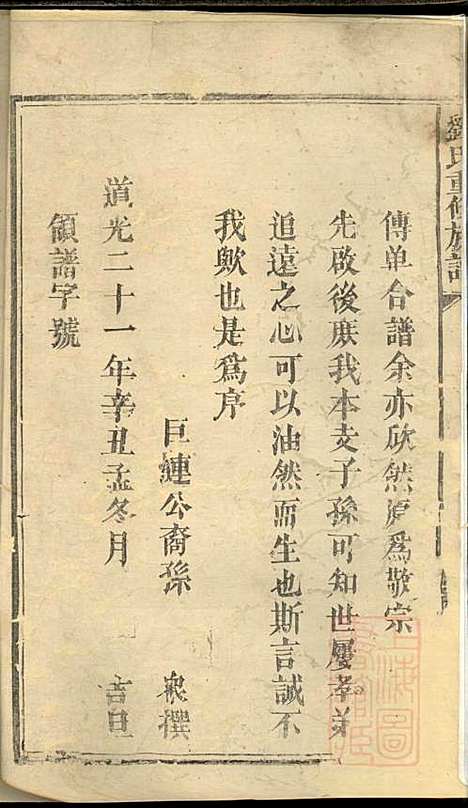 劉氏重修族譜
傳单合譜余亦欣然為敬宗
先啟後庶我本支子孫可知世屬孝弟
追遠之心可以油然而生也斯言誠不
我欺也是為序
巨鏈公裔孫 衆撰
道光二十一年辛丑孟冬月 吉旦
領譜字號
上海圖